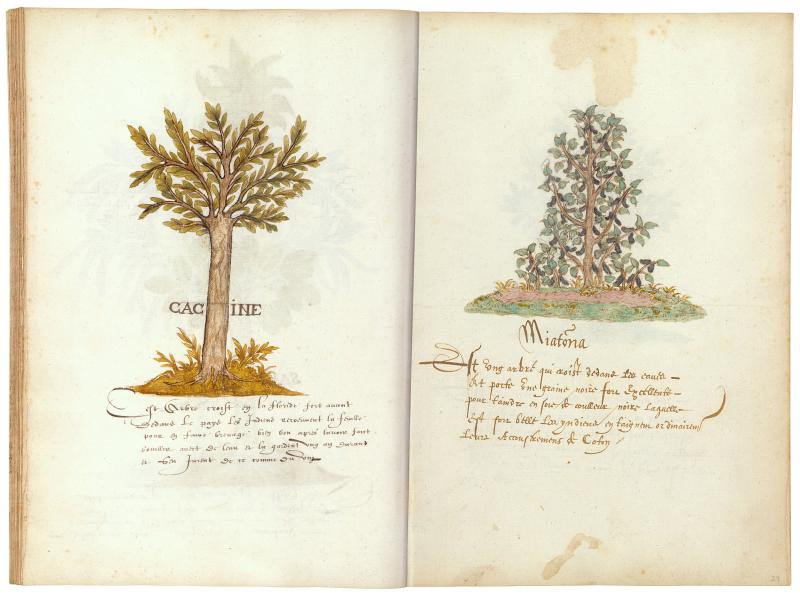 CACINE
Cest Arbre croist en la floride fort avant
dedans le pays les Indiens recoeuvent la feulle
pour en faire brevage bien bon apres lavoir fait
bouillir avecq de leau et la gardent ung an durant
et sen servent de ce comme du vin
Miatonia
Est ung arbre qui croist dedans les eaues
et porte une graine noire fort excellente
pour taindre en soie de coulleur noire laquelle
est fort belle les yndiens en taignent ordinairem
leurs accoustremens de Coton
29